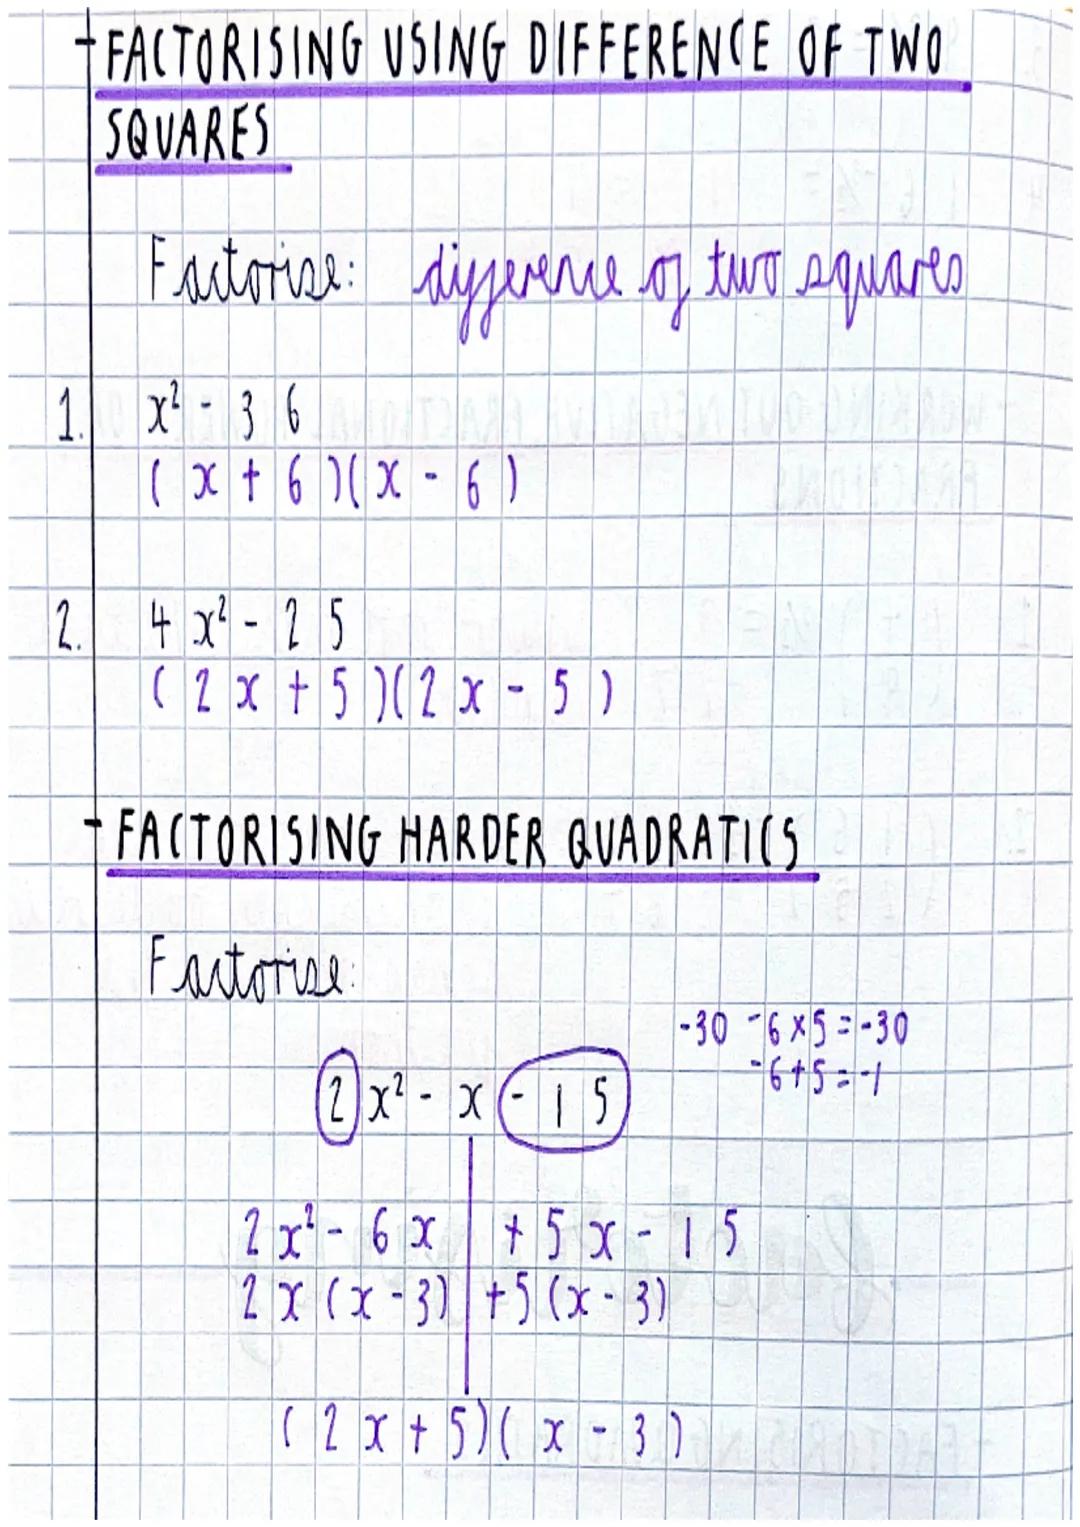 - FACTORISING USING DIFFERENCE OF TWO
SQUARES
Factorise: difference of two squares
1. x² - 36
(x + 6)(x - 6)
2. 4x² - 25
(2x + 5)(2x - 5)
- FACTORISING HARDER QUADRATICS
Factorise:
-30 -6×5=-30
-6+5=-1
2x² - x - 15
2x² - 6x + 5x - 15
2x(x-3) +5(x-3)
(2x + 5)(x - 3)